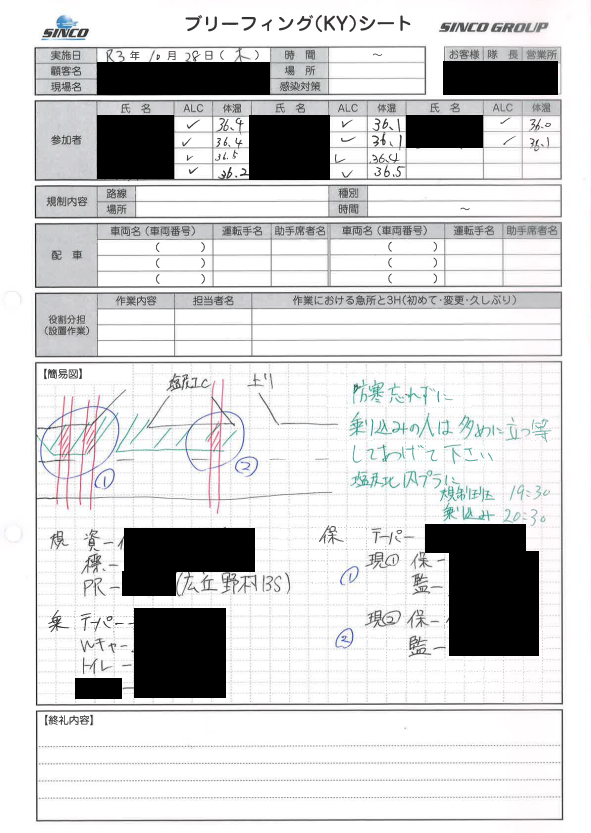 SINCO
ブリーフィング(KY)シート
SINCO GROUP
実施日 R3年10月28日(木) 時間 ~
お客様 隊長 営業所
顧客名 場所
現場名 感染対策
参加者 氏名 ALC 体温 氏名 ALC 体温 氏名 ALC 体温
✓ 36.4 ✓ 36.1 ✓ 36.0
✓ 36.4 ✓ 36.1 ✓ 36.1
✓ 36.5 ✓ 36.4
✓ 36.2 ✓ 36.5
規制内容 路線 種別
場所 時間 ~
配車 車両名(車両番号) 運転手名 助手席者名 車両名(車両番号) 運転手名 助手席者名
( ) ( )
( ) ( )
( ) ( )
役割分担(設置作業) 作業内容 担当者名 作業における急所と3H(初めて・変更・久しぶり)
【簡易図】
塩尻IC 上り
① ②
防寒忘れずに
乗り込みの人は多めに立つ等
してあげて下さい
塩尻北
19:30
乗り込み 20:30
規 資ー
標ー
PRー (広丘野村BS)
乗 テーパー
Wチャー
トイレー
保 テーパー
① 現① 保ー
監ー
② 現② 保ー
監ー
【終礼内容】